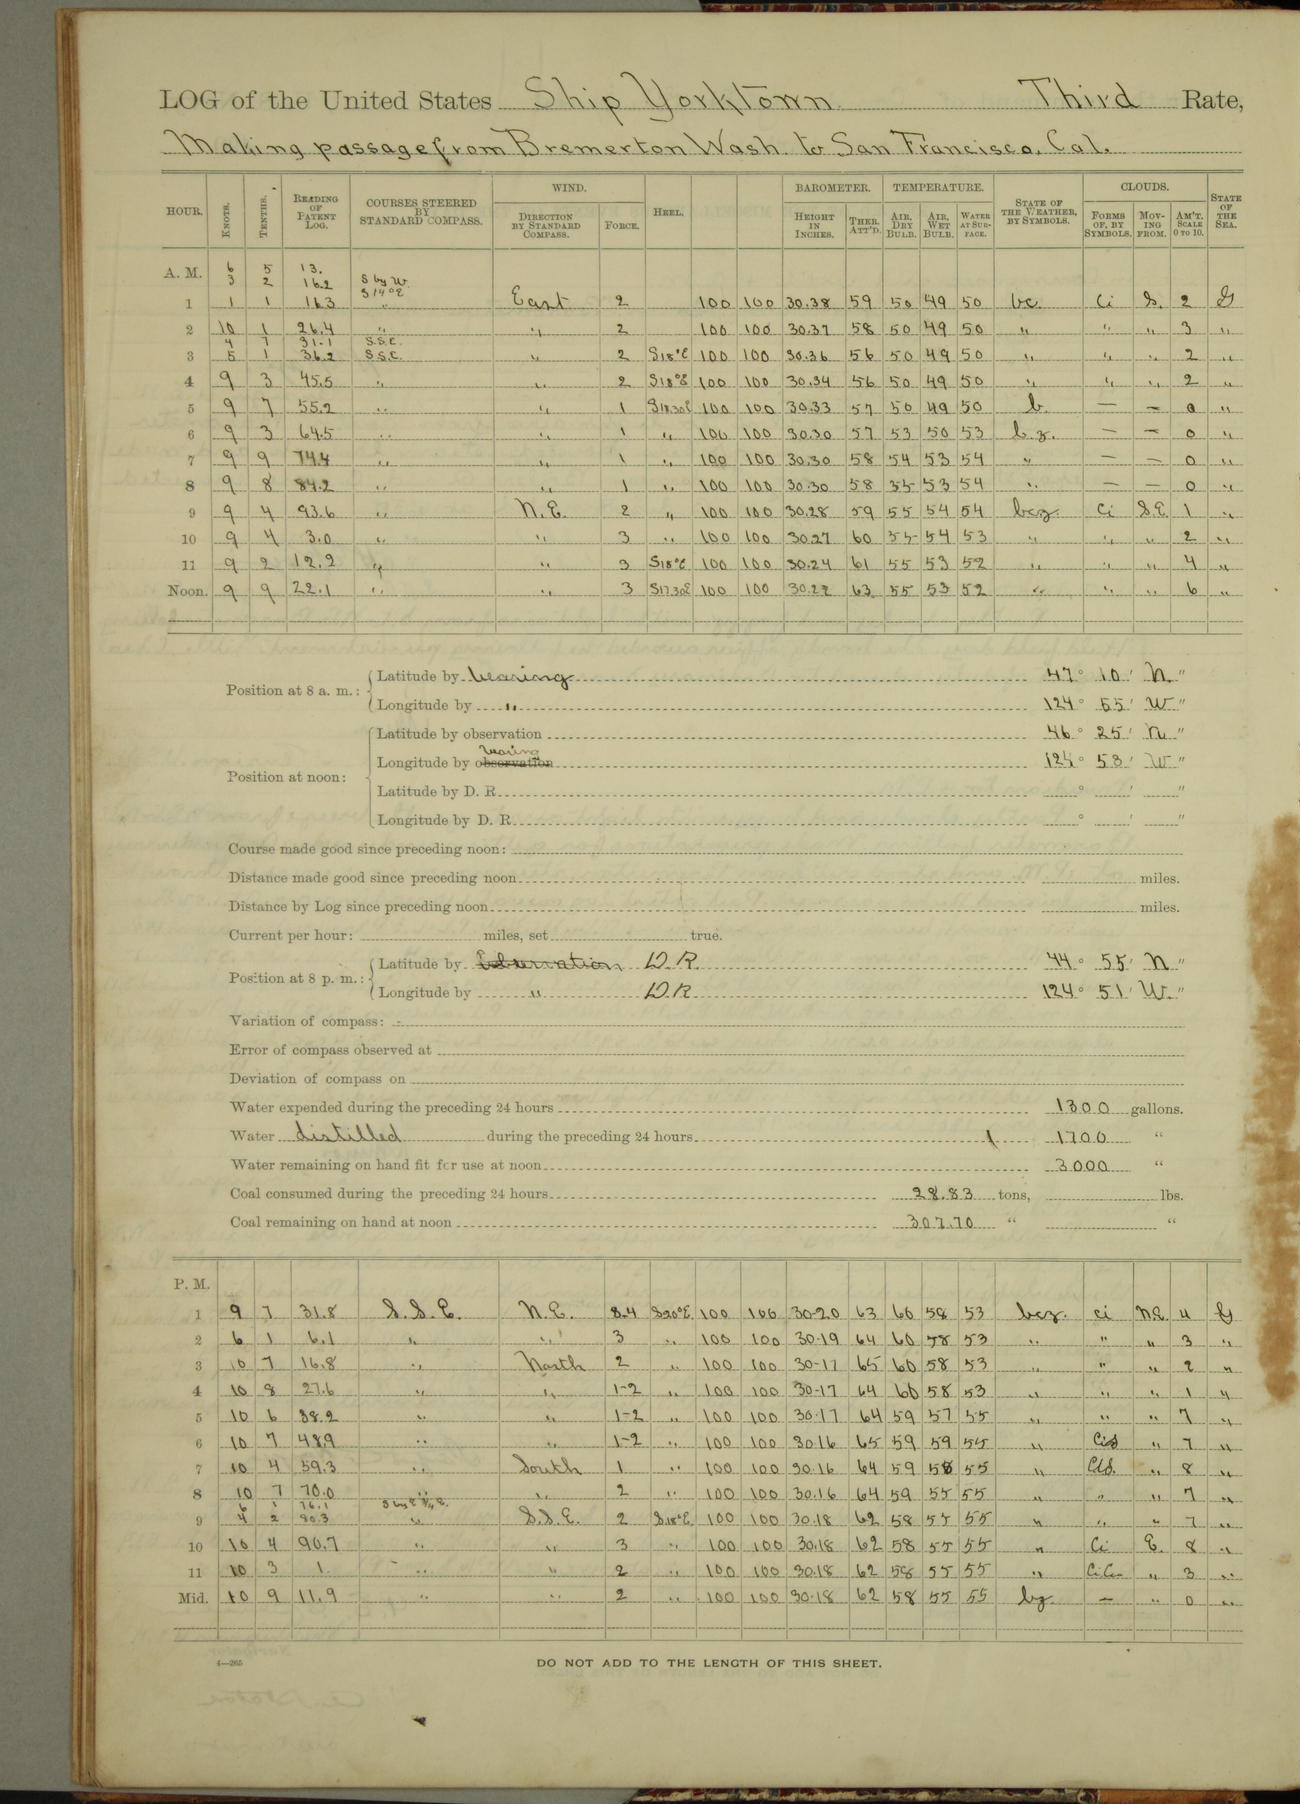 LOG of the United States Ship Yorktown Third Rate,
Making passage from Bremerton Wash. to San Francisco, Cal.
HOUR. KNOTS. TENTHS. READING OF PATENT LOG. COURSES STEERED BY STANDARD COMPASS. WIND. DIRECTION BY STANDARD COMPASS. FORCE. HEEL. BAROMETER. HEIGHT IN INCHES. THER. ATT'D. TEMPERATURE. AIR, DRY BULB. AIR, WET BULB. WATER AT SURFACE. STATE OF THE WEATHER, BY SYMBOLS. CLOUDS. FORMS OF, BY SYMBOLS. MOVING FROM. AM'T. SCALE 0 TO 10. STATE OF THE SEA.
A. M. 6 5 13.
3 2 16.2 S by W.
S 14°E
1 1 1 16.3 " East 2 100 100 30.38 59 50 49 50 bc. Ci S. 2 G
2 10 1 26.4 " " 2 100 100 30.37 58 50 49 50 " " " 3 "
4 7 31.1 S.S.E.
3 5 1 36.2 S.S.E. " 2 S18°E 100 100 30.36 56 50 49 50 " " " 2 "
4 9 3 45.5 " " 2 S18°E 100 100 30.34 56 50 49 50 " " " 2 "
5 9 7 55.2 " " 1 S18.30E 100 100 30.33 57 50 49 50 b. — — 0 "
6 9 3 64.5 " " 1 " 100 100 30.30 57 53 50 53 b.z. — — 0 "
7 9 9 74.4 " " 1 " 100 100 30.30 58 54 53 54 " — — 0 "
8 9 8 84.2 " " 1 " 100 100 30.30 58 55 53 54 " — — 0 "
9 9 4 93.6 " N.E. 2 " 100 100 30.28 59 55 54 54 bcz. Ci S.E. 1 "
10 9 4 3.0 " " 3 " 100 100 30.27 60 55 54 53 " " " 2 "
11 9 2 12.2 " " 3 S18°E 100 100 30.24 61 55 53 52 " " " 4 "
Noon. 9 9 22.1 " " 3 S17.30E 100 100 30.22 63 55 53 52 " " " 6 "
Position at 8 a. m.: Latitude by bearing 47° 10' N. "
Longitude by " 124° 55' W "
Position at noon: Latitude by observation 46° 25' N "
bearing
Longitude by observation 124° 53' W "
Latitude by D. R. ° ' "
Longitude by D. R. ° ' "
Course made good since preceding noon:
Distance made good since preceding noon miles.
Distance by Log since preceding noon miles.
Current per hour: miles, set true.
Position at 8 p. m.: Latitude by Observation D.R. 44° 55' N "
Longitude by " D.R. 124° 51' W. "
Variation of compass:
Error of compass observed at
Deviation of compass on
Water expended during the preceding 24 hours 1300 gallons.
Water distilled during the preceding 24 hours 1700 "
Water remaining on hand fit for use at noon 3000 "
Coal consumed during the preceding 24 hours 28.83 tons, lbs.
Coal remaining on hand at noon 307.70 " "
P. M.
1 9 7 31.8 S.S.E. N.E. 3.4 S20°E 100 100 30-20 63 60 58 53 bcz. Ci N.E. 4 G
2 6 1 6.1 " " 3 " 100 100 30-19 64 60 58 53 " " " 3 "
3 10 7 16.8 " North 2 " 100 100 30-17 65 60 58 53 " " " 2 "
4 10 8 27.6 " " 1-2 " 100 100 30-17 64 60 58 53 " " " 1 "
5 10 6 38.2 " " 1-2 " 100 100 30.17 64 59 57 55 " " " 7 "
6 10 7 48.9 " " 1-2 " 100 100 30.16 65 59 59 55 " CiS " 7 "
7 10 4 59.3 " South 1 " 100 100 30.16 64 59 58 55 " CiS. " 8 "
8 10 7 70.0 " " 2 " 100 100 30.16 64 59 55 55 " " " 7 "
6 1 76.1 S by E ¾ E.
9 4 2 80.3 " S.S.E. 2 S.18°E 100 100 30.18 62 58 55 55 " " " 7 "
10 10 4 90.7 " " 3 " 100 100 30.18 62 58 55 55 " Ci E. 8 "
11 10 3 1. " " 2 " 100 100 30.18 62 58 55 55 " CiCu " 3 "
Mid. 10 9 11.9 " " 2 " 100 100 30.18 62 58 55 55 bz. — " 0 "
4—265
DO NOT ADD TO THE LENGTH OF THIS SHEET.